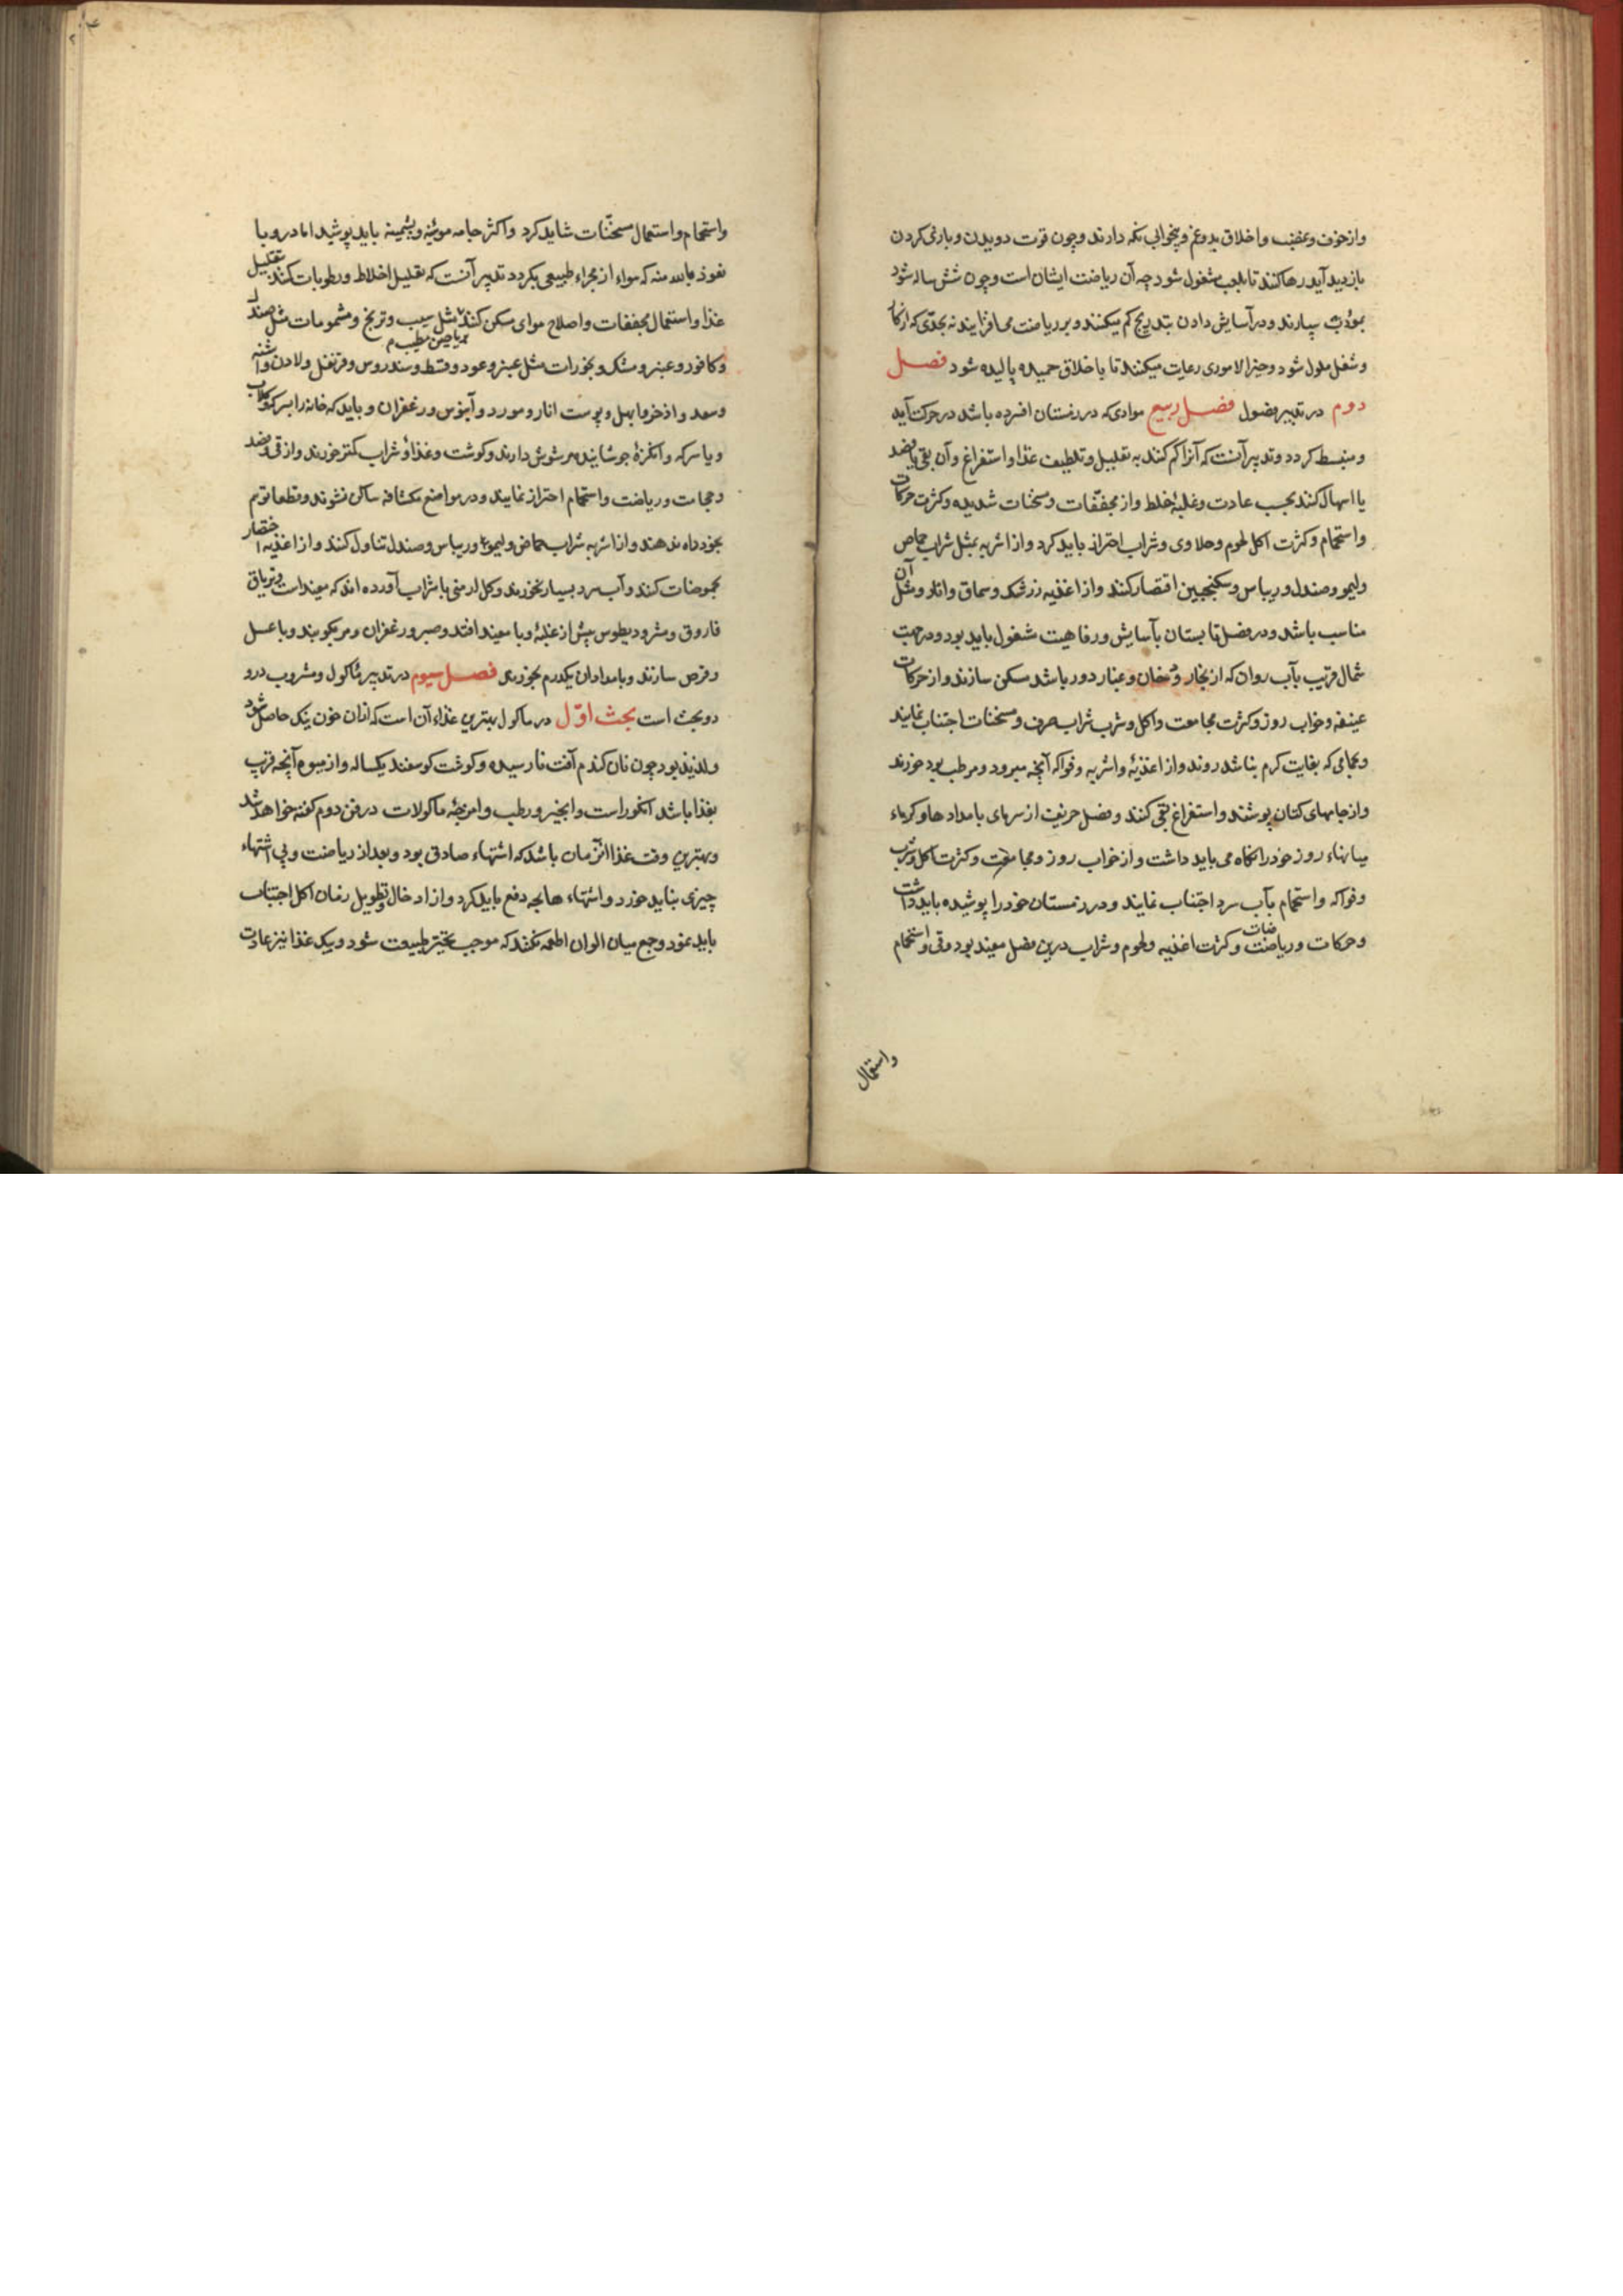 واز خوف وغضب واخلاق بد وغم وبیخوابی نکه دارند وچون قوت دویدن وبازی کردن
بازدید آید رها کنند تا بلعب مشغول شود چه آن ریاضت ایشان است وچون شش ساله شود
بمؤدب سپارند ودر آسایش دادن بتدریج کم میکنند وبر ریاضت می افزایند نه بحدی که از کار
وشغل ملول شود وخیر الاموری رعایت میکنند تا باخلاق حمیده پالیده شود فصل
دوم در تدبیر فصول فصل ربیع موادی که در زمستان افسرده باشد در حرکت آید
ومنبسط کردد وتدبیر آنست که آنرا کم کنند به تقلیل وتلطیف غذا واستفراغ وآن بقی یا فصد
یا اسهال کنند بحسب عادت وغلبۀ خلط واز مجففات ومسخنات شدیده وکثرت حرکات
واستحمام وکثرت اکل لحوم وحلاوی وشراب احتراز باید کرد واز اشربه بمثل شراب حماض
ولیمو وصندل وریباس وسکنجبین اقتصار کنند واز اغذیه زرشک وسماق وانار ومثل آن
مناسب باشد ودر فصل تابستان بآسایش ورفاهیت مشغول باید بود ودر جهت
شمال قریب بآب روان که از بخار ودخان وغبار دور باشد مسکن سازند واز حرکات
عنیفه وخواب روز وکثرت مجامعت واکل وشرب شراب صرف ومسخنات اجتناب نمایند
وبحمامی که بغایت کرم نباشد روند واز اغذیۀ واشربه وفواکه آنچه مبرود ومرطب بود خورند
واز جامهای کتان پوشند واستفراغ بقی کنند وفصل خریف از سرمای بامدادها وکرماء
میانهاء روز خود را نکاه می باید داشت واز خواب روز ومجامعت وکثرت اکل وشرب
وفواکه واستحمام بآب سرد اجتناب نمایند ودر زمستان خود را پوشیده باید داشت
وحرکات وریاضت وکثرت اغذیه ولحوم وشراب درین فصل مفید بود وقی واستحمام
واستعمال
واستحمام واستعمال مسخنات شاید کرد واکثر جامه موئینه وپشمینه باید پوشید اما در وبا
نعوذ بالله منه که هواء از مجراء طبیعی بکردد تدبیر آنست که تقلیل اخلاط ورطوبات کنند بتقلیل
غذا واستعمال مجففات واصلاح هوای مسکن کنند بمثل سیب وترنج ومشمومات مثل صندل
وریاحین مطیب
وکافور وعنبر ومشک وبخورات مثل عنبر وعود وقسط وسندروس وقرنفل ولادن واشنه
وسعد واذخر وابهل وپوست انار ومورد وآبنوس وزعفران وباید که خانه را بسرکه وکلاب
ویا سرکه وانکزۀ جوشانیده مرشوش دارند وکوشت وغذاؤ شراب کمتر خورند واز قی وفصد
وحجامت وریاضت واستحمام احتراز نمایند ودر مواضع مکشافه ساکن نشوند وقطعا توهم
بخود راه ندهند واز اشربه شراب حماض ولیمو وریباس وصندل تناول کنند واز اغذیه اختصار
بحموضات کنند وآب سرد بسیار نخورند وکل ارمنی با شراب آورده اند که مفید است وتریاق
فاروق ومثرودیطوس پیش از غلبۀ وبا مفید افتد وصبر وزعفران ومر بکوبند وبا عسل
وقرص سازند وبامدادان یکدرم بخورند فصل سیوم در تدبیر مأکول ومشروب درو
دو بحث است بحث اوّل در ماکول بهترین غذاء آن است که ازان خون نیک حاصل شود
ولذیذ بود چون نان کندم آفت نارسیده وکوشت کوسفند یکساله واز میوه آنچه قریب
بغذا باشد انکور است وانجیر ورطب وامزجۀ ماکولات در فن دوم کفته خواهد شد
وبهترین وقت غذا آنزمان باشد که اشتهاء صادق بود وبعد از ریاضت وبی اشتهاء
چیزی نباید خورد واشتهاء هایجه دفع باید کرد واز ادخال وتطویل زمان اکل اجتناب
باید نمود وجمع میان الوان اطعمه نکنند که موجب تحیر طبیعت شود وبیک غذا نیز عادت